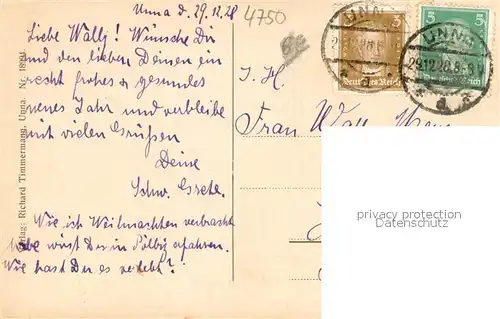 Unna d. 29.12.28
4750
Liebe Wally! Wünsche Dir
und den lieben Deinen ein
recht frohes & gesundes
neues Jahr und verbleibe
mit vielen Grüßen
Deine
Schw. Grete.
Wie ich Weihnachten verbracht
habe wirst Du in erfahren.
Wie hast Du es verlebt?
Verlag: Richard Timmermann, Unna. Nr.
I. H.
Frau
UNNA
3
Deutsches Reich
UNNA
29.12.28
5
Deutsches Reich
a
privacy protection
Datenschutz